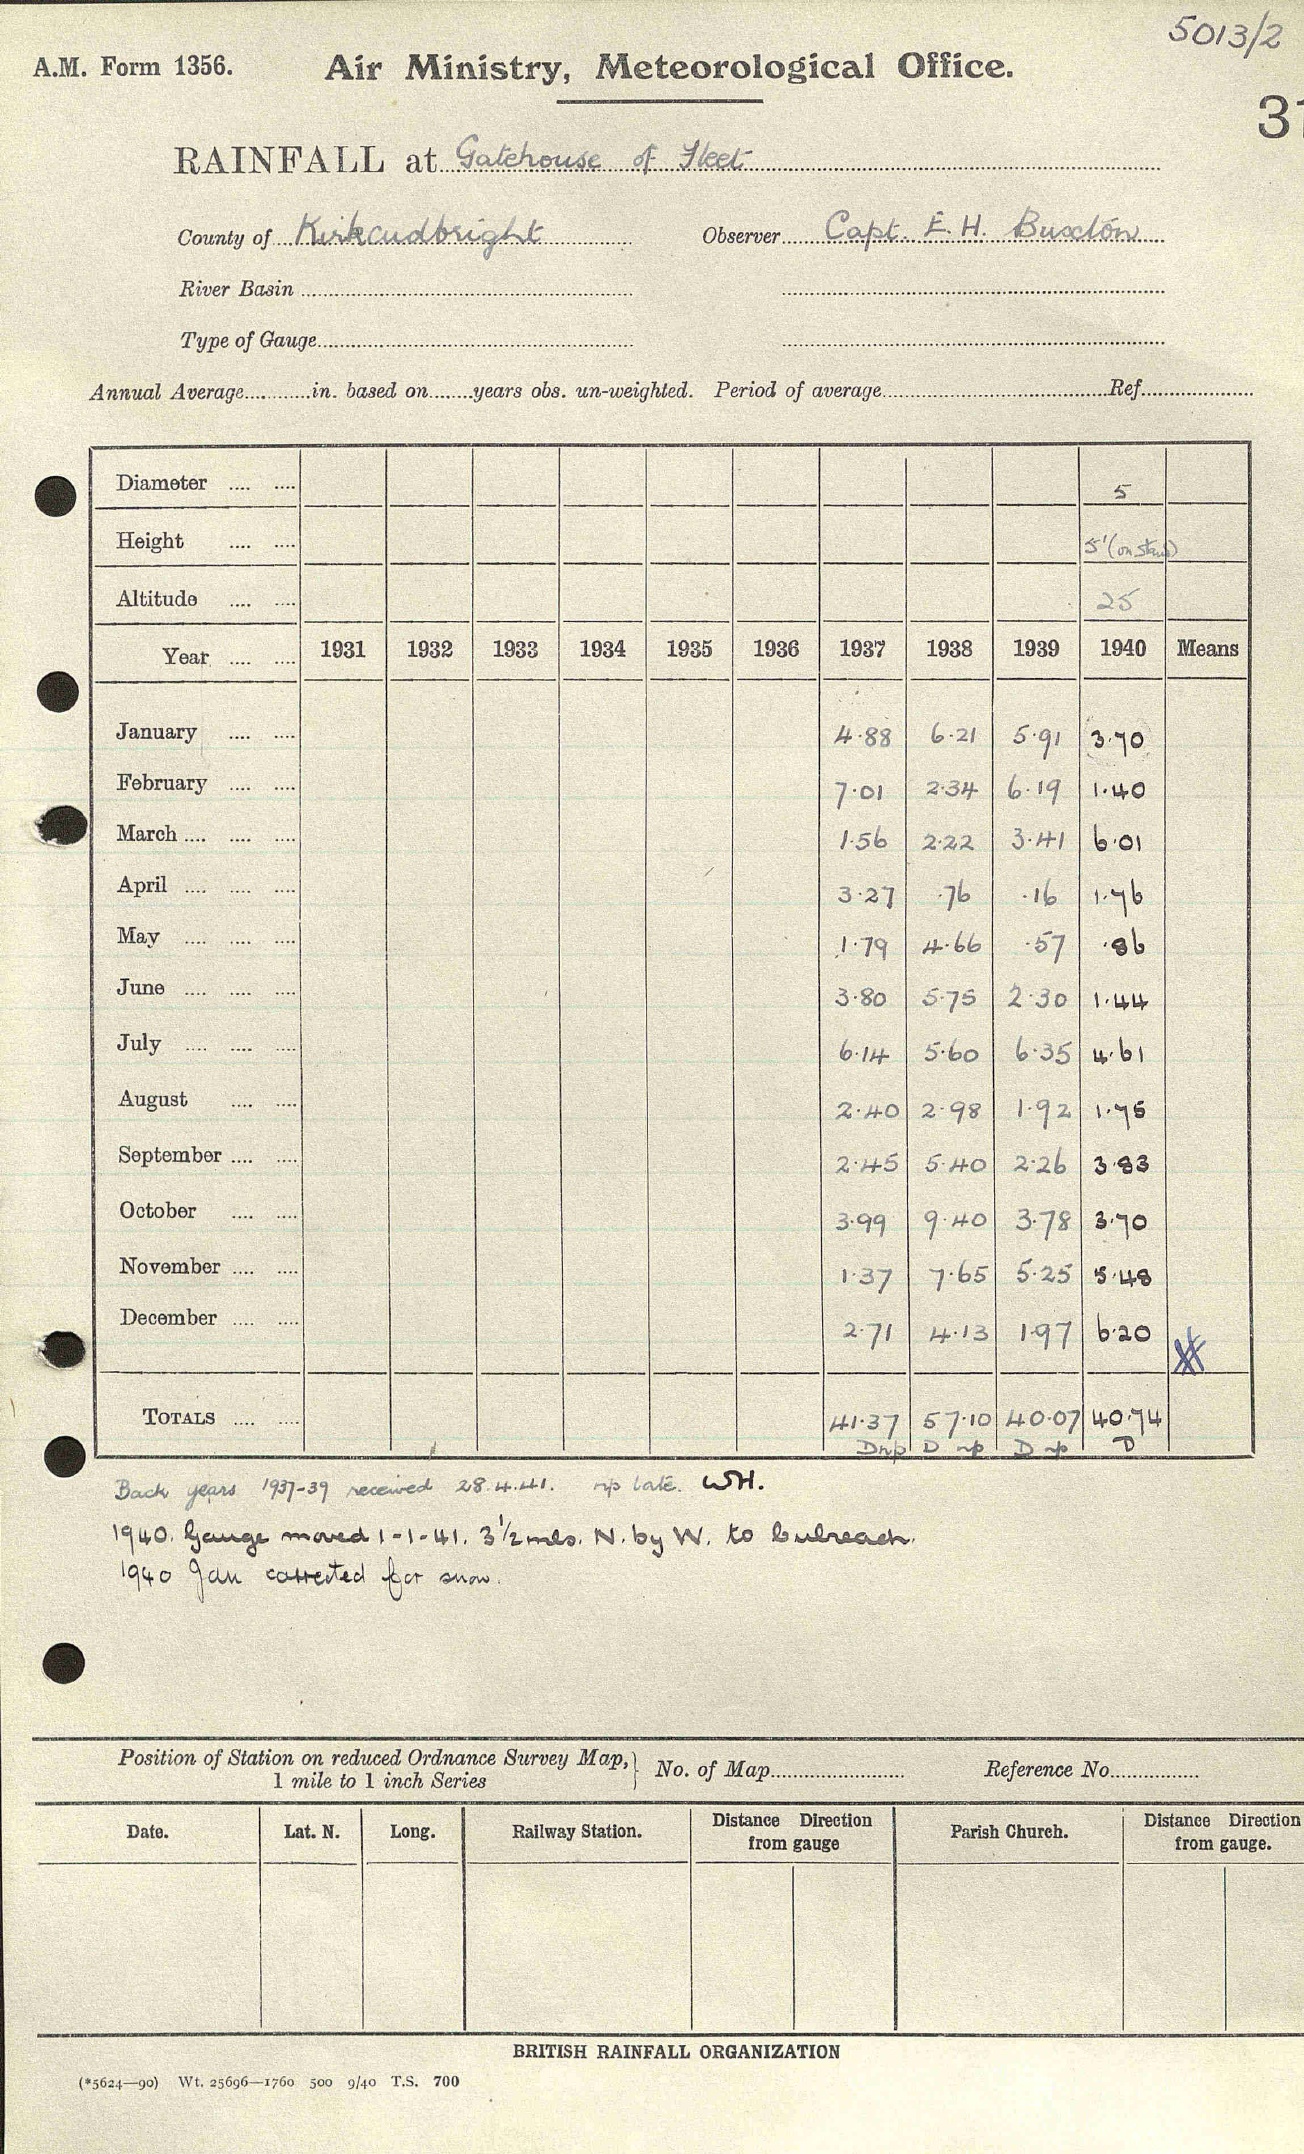 5013/2
A.M. Form 1356. Air Ministry, Meteorological Office.
31
RAINFALL at Gatehouse of Fleet
County of Kirkcudbright Observer Capt. E. H. Buxton
River Basin
Type of Gauge
Annual Average in. based on years obs. un-weighted. Period of average Ref.
Diameter 5
Height 5' (on stand)
Altitude 25
Year 1931 1932 1933 1934 1935 1936 1937 1938 1939 1940 Means
January 4·88 6·21 5·91 3·70
February 7·01 2·34 6·19 1·40
March 1·56 2·22 3·41 6·01
April 3·27 ·76 ·16 1·76
May 1·79 4·66 ·57 ·86
June 3·80 5·75 2·30 1·44
July 6·14 5·60 6·35 4·61
August 2·40 2·98 1·92 1·75
September 2·45 5·40 2·26 3·83
October 3·99 9·40 3·78 3·70
November 1·37 7·65 5·25 5·48
December 2·71 4·13 1·97 6·20
TOTALS 41·37 57·10 40·07 40·74
D np D np D np D
Back years 1937-39 received 28.4.41. np late. WH.
1940. Gauge moved 1-1-41. 3 1/2 mls. N. by W. to Culreach.
1940 Jan corrected for snow.
Position of Station on reduced Ordnance Survey Map, 1 mile to 1 inch Series } No. of Map Reference No.
Date. Lat. N. Long. Railway Station. Distance Direction from gauge Parish Church. Distance Direction from gauge.
BRITISH RAINFALL ORGANIZATION
(*5624—90) Wt. 25696—1760 500 9/40 T.S. 700